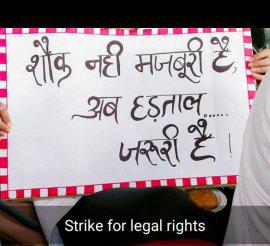 शौक नही मजबूरी है,
अब हड़ताल.....
जरूरी है !
Strike for legal rights